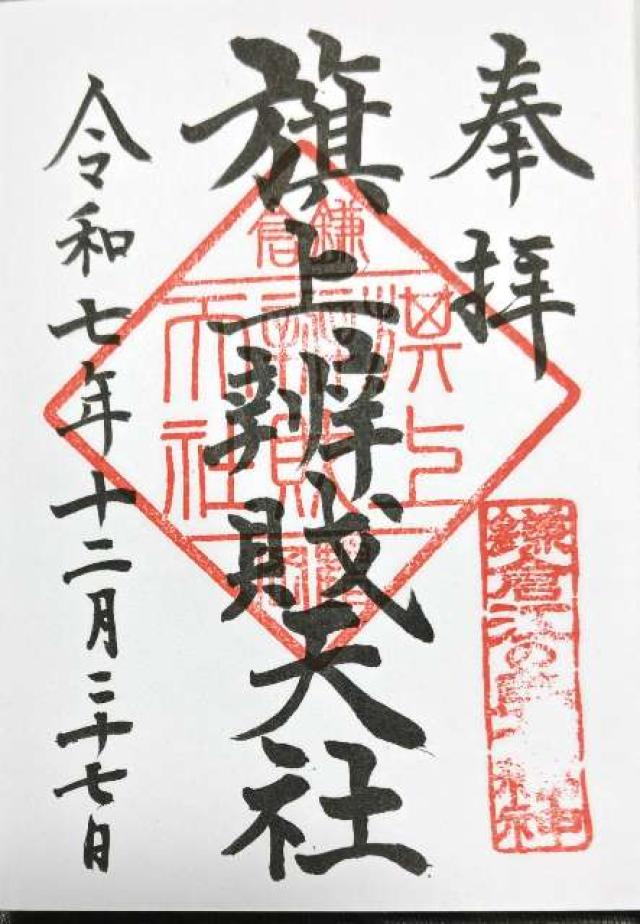 奉拝
旗上辨財天社
令和七年十二月二十七日
鎌倉
旗上
辨財
天社
鎌倉江の島
神